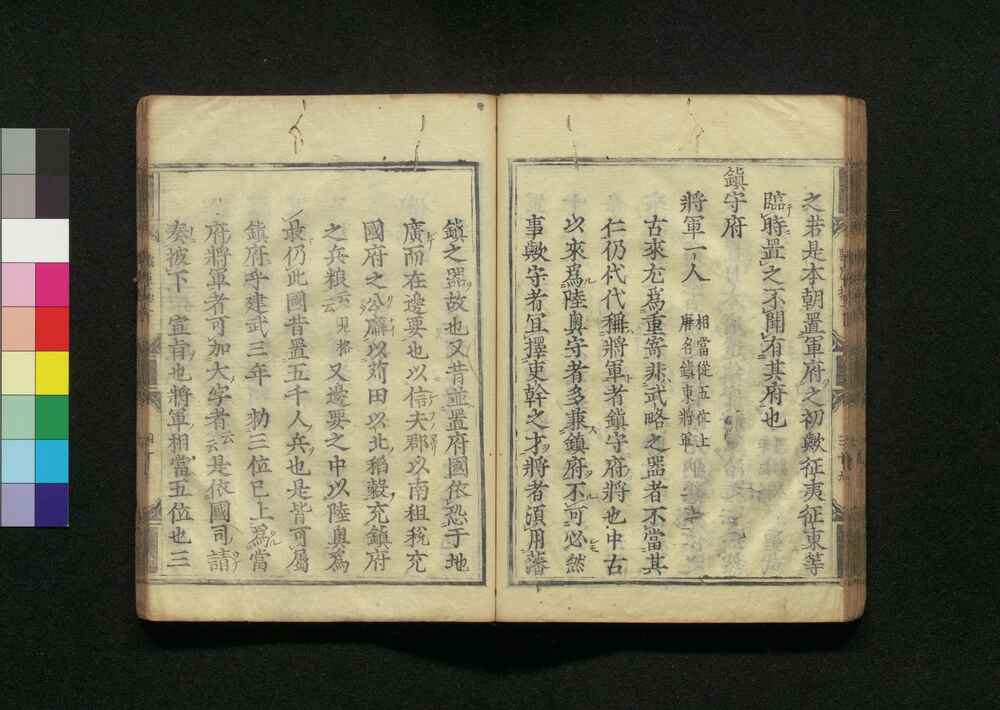 之若是本朝置軍府之初歟征夷征東等
臨時置之不聞有其府也
鎮守府
將軍一人 相當從五位上
唐名鎮東將軍
古來尤為重寄非武略之器者不當其
仁仍代代稱將軍者鎮守府將也中古
以來爲陸奥守者多兼鎮府不可必然
事歟守者宜擇吏幹之才將者須用藩
鎮之器故也又昔並置府國依恐于地
廣而在邊要也以信夫郡以南租税充
國府之公廨以苅田以北稻穀充鎮府
之兵粮云云見格又邊要之中以陸奥為
最仍此國昔置五千人兵也是皆可屬
鎮府乎建武三年勑三位已上爲當
府將軍者可加大字者云云是依國司請
奏被下宣旨也將軍相當五位也三